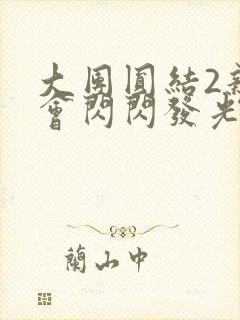 大團圓結2
會閃閃發光
蘭山中